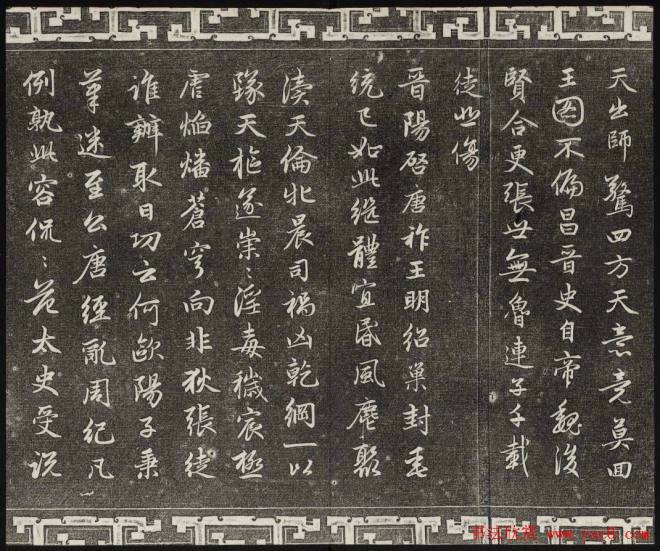 天出師驚四方天意竟莫回
王图不偏昌晉史自帝魏後
賢合更張世無魯連子千載
徒悲傷
晉陽啓唐祚王明紹巢封垂
統已如此繼體宜昏風麀聚
瀆天倫牝晨司禍凶乾綱一以
墜天樞遂崇〻淫毒穢宸極
虐焰燔蒼穹向非狄張徒
誰辦取日功云何歐陽子秉
筆迷至公唐經亂周紀凡
例孰此容侃〻范太史受說
书法欣赏 www.yac8.com